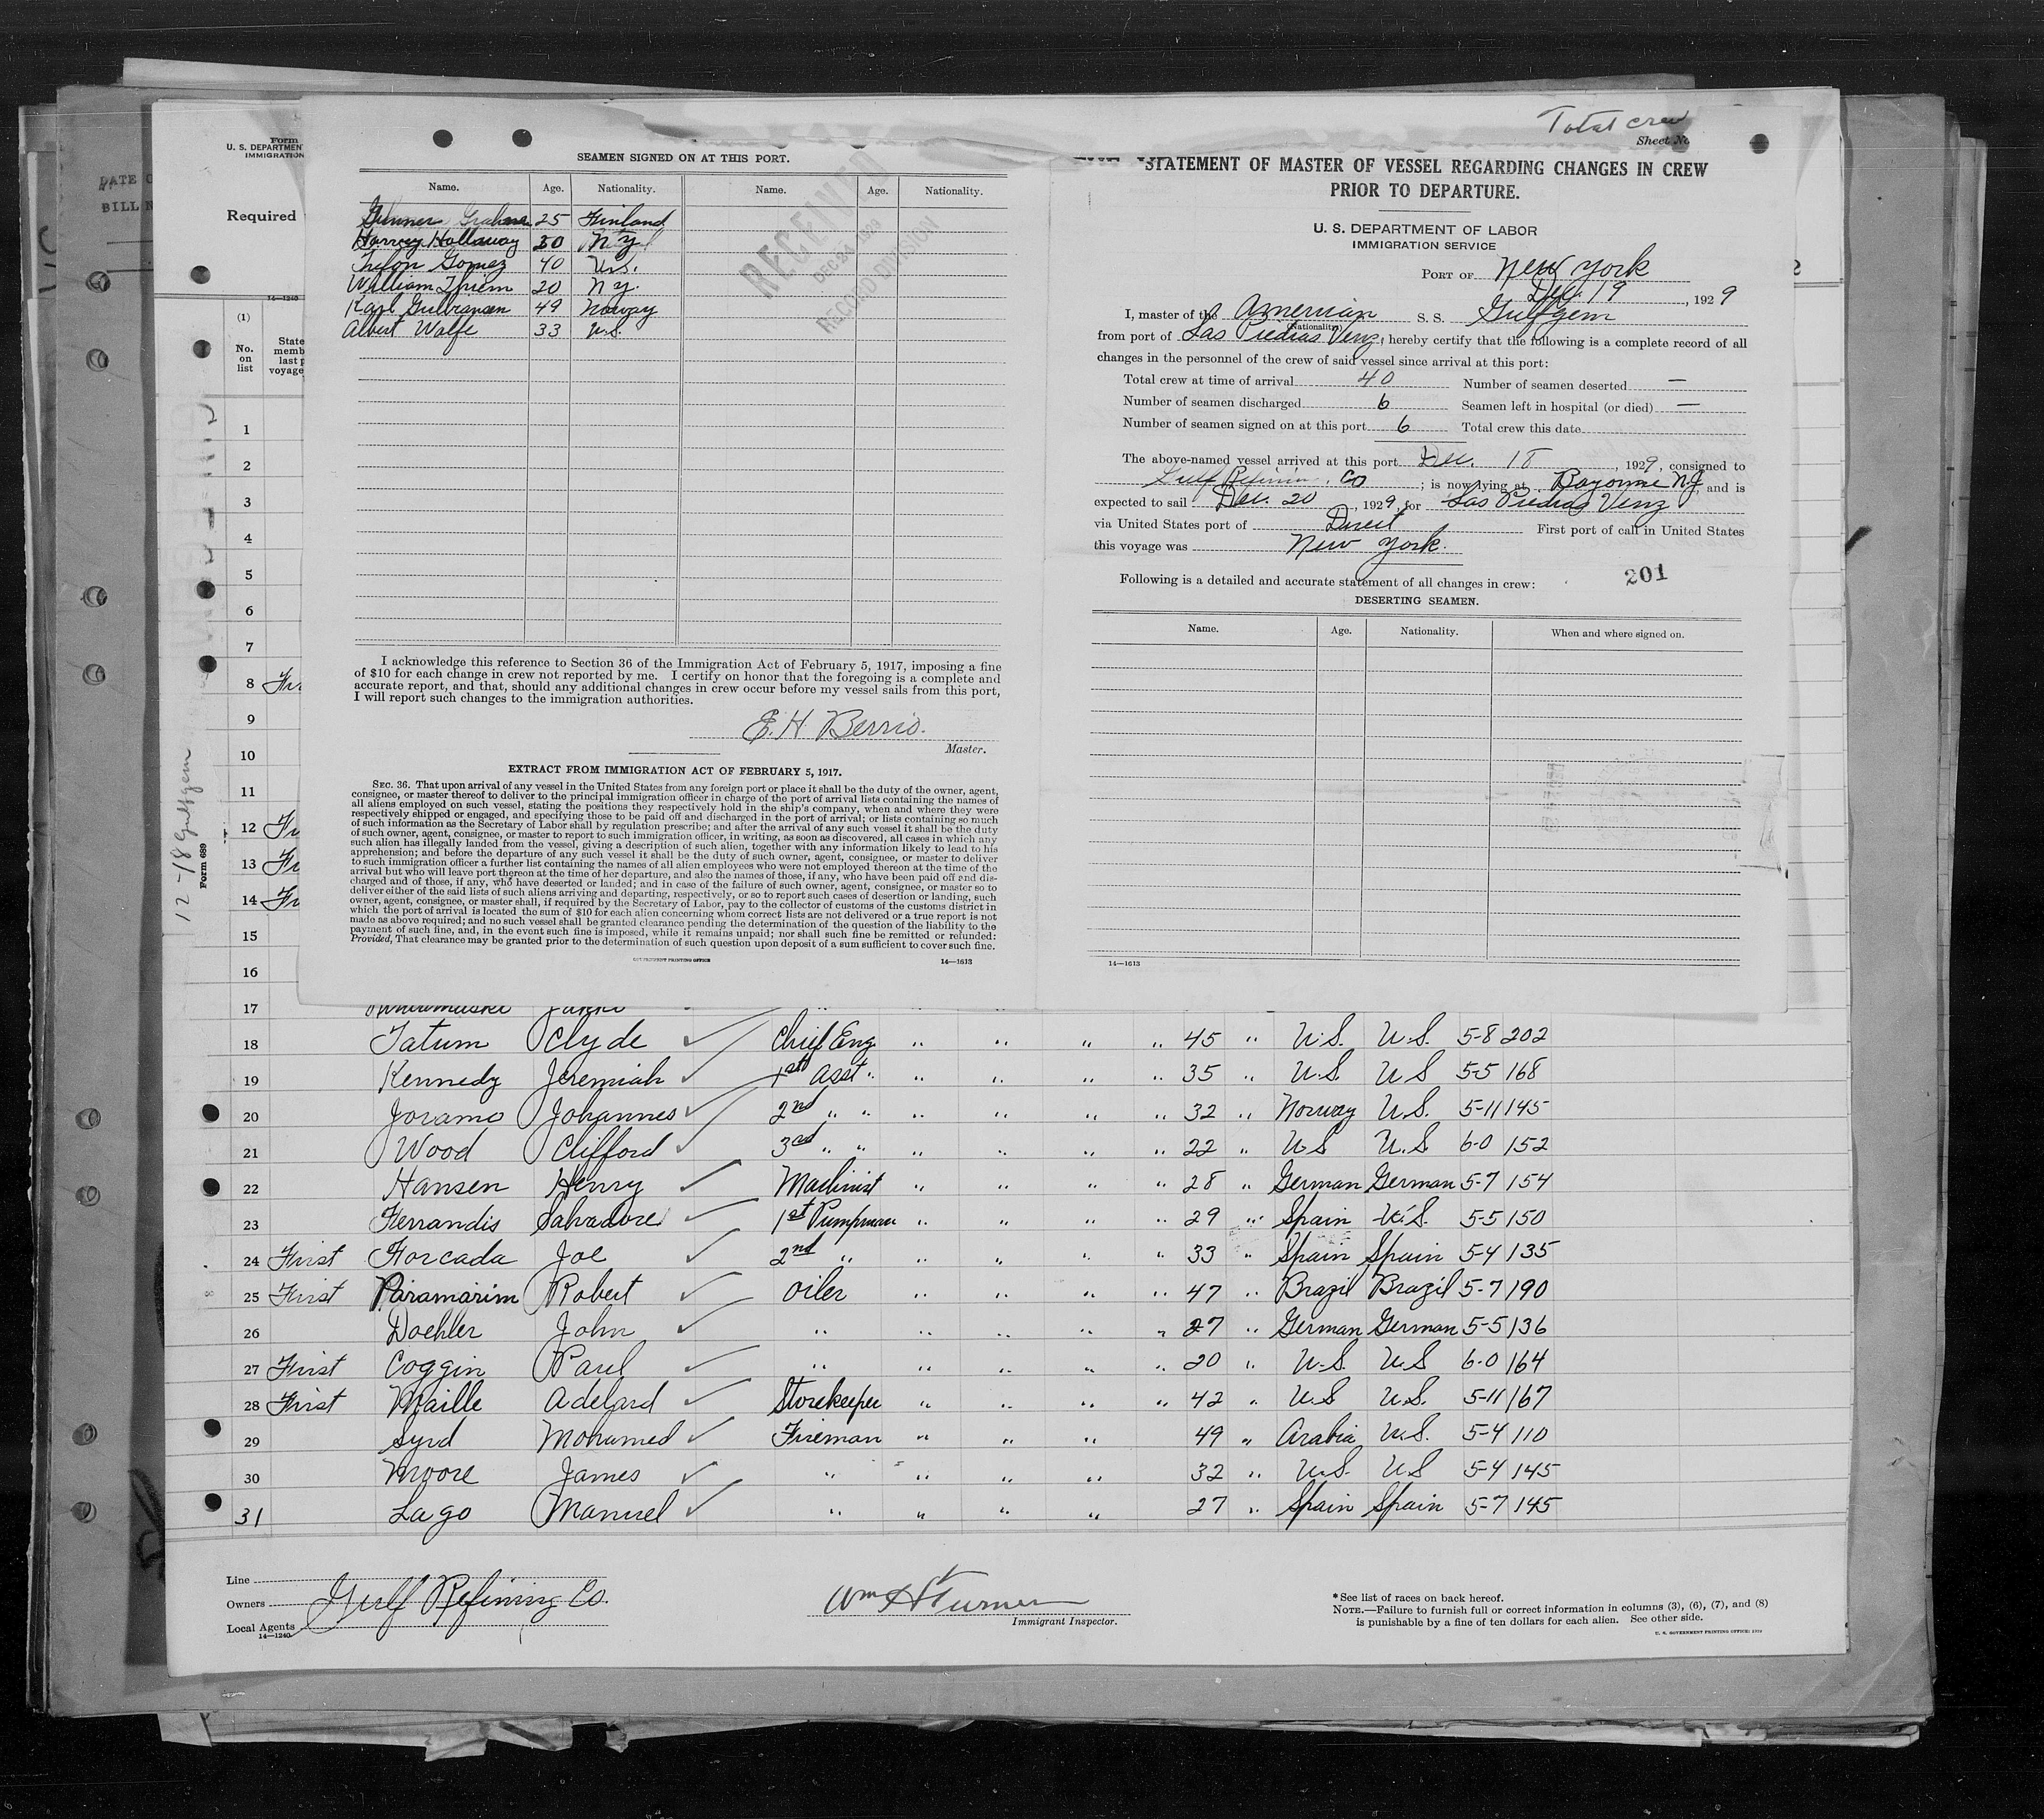 Total crew
Sheet No.
Form
U. S. DEPARTMENT
IMMIGRATION
DATE O
BILL N
Required
14—1240
(1)
No. on list
State
memb
last p
voyage
SEAMEN SIGNED ON AT THIS PORT.
Name. Age. Nationality. Name. Age. Nationality.
Gunner 25 Finland
Harvey Hallaway 30 N Y
Trifon Gomez 40 U.S.
William Thiem 20 N Y.
Karl Gulbransen 49 Norway
Albert Wolfe 33 U.S.
RECEIVED
DEC 26 1929
RECORD DIVISION
I acknowledge this reference to Section 36 of the Immigration Act of February 5, 1917, imposing a fine
of $10 for each change in crew not reported by me. I certify on honor that the foregoing is a complete and
accurate report, and that, should any additional changes in crew occur before my vessel sails from this port,
I will report such changes to the immigration authorities.
E. H. Berrio.
Master.
EXTRACT FROM IMMIGRATION ACT OF FEBRUARY 5, 1917.
SEC. 36. That upon arrival of any vessel in the United States from any foreign port or place it shall be the duty of the owner, agent,
consignee, or master thereof to deliver to the principal immigration officer in charge of the port of arrival lists containing the names of
all aliens employed on such vessel, stating the positions they respectively hold in the ship's company, when and where they were
respectively shipped or engaged, and specifying those to be paid off and discharged in the port of arrival; or lists containing so much
of such information as the Secretary of Labor shall by regulation prescribe; and after the arrival of any such vessel it shall be the duty
of such owner, agent, consignee, or master to report to such immigration officer, in writing, as soon as discovered, all cases in which any
such alien has illegally landed from the vessel, giving a description of such alien, together with any information likely to lead to his
apprehension; and before the departure of any such vessel it shall be the duty of such owner, agent, consignee, or master to deliver
to such immigration officer a further list containing the names of all alien employees who were not employed thereon at the time of the
arrival but who will leave port thereon at the time of her departure, and also the names of those, if any, who have been paid off and dis-
charged and of those, if any, who have deserted or landed; and in case of the failure of such owner, agent, consignee, or master so to
deliver either of the said lists of such aliens arriving and departing, respectively, or so to report such cases of desertion or landing, such
owner, agent, consignee, or master shall, if required by the Secretary of Labor, pay to the collector of customs of the customs district in
which the port of arrival is located the sum of $10 for each alien concerning whom correct lists are not delivered or a true report is not
made as above required; and no such vessel shall be granted clearance pending the determination of the question of the liability to the
payment of such fine, and, in the event such fine is imposed, while it remains unpaid; nor shall such fine be remitted or refunded:
Provided, That clearance may be granted prior to the determination of such question upon deposit of a sum sufficient to cover such fine.
GOVERNMENT PRINTING OFFICE 14—1613
STATEMENT OF MASTER OF VESSEL REGARDING CHANGES IN CREW
PRIOR TO DEPARTURE.
U. S. DEPARTMENT OF LABOR
IMMIGRATION SERVICE
PORT OF New York
Dec. 19, 1929
I, master of the American S. S. Gulfgem
(Nationality)
from port of Las Piedras Venz, hereby certify that the following is a complete record of all
changes in the personnel of the crew of said vessel since arrival at this port:
Total crew at time of arrival 40 Number of seamen deserted —
Number of seamen discharged 6 Seamen left in hospital (or died) —
Number of seamen signed on at this port 6 Total crew this date
The above-named vessel arrived at this port Dec. 18, 1929, consigned to
Gulf Refinin. Co; is now lying at Bayonne N.J, and is
expected to sail Dec. 20, 1929, for Las Piedras Venz
via United States port of Direct First port of call in United States
this voyage was New York.
Following is a detailed and accurate statement of all changes in crew:
201
DESERTING SEAMEN.
Name. Age. Nationality. When and where signed on.
14—1613
12-18 Gulfgem
Form 689
1
2
3
4
5
6
7
8
9
10
11
12
13
14
15
16
17
18 Tatum Clyde ✓ Chief Eng " " " " 45 " U.S. U.S. 5-8 202
19 Kennedy Jeremiah ✓ 1st Asst " " " " " 35 " U.S. U S 5-5 168
20 Joramo Johannes ✓ 2nd " " " " " " 32 " Norway U.S. 5-11 145
21 Wood Clifford ✓ 3rd " " " " " " 22 " U S U.S 6-0 152
22 Hansen Henry ✓ Machinist " " " " 28 " German German 5-7 154
23 Ferrandis Salvadore ✓ 1st Pumpman " " " " 29 " Spain U.S. 5-5 150
24 First Forcada Joe ✓ 2nd " " " " " 33 " Spain Spain 5-4 135
25 First Paramarim Robert ✓ oiler " " " " 47 " Brazil Brazil 5-7 190
26 Doehler John ✓ " " " " " 27 " German German 5-5 136
27 First Coggin Paul ✓ " " " " " 20 " U.S. U.S 6-0 164
28 First Maille Adelard ✓ Storekeeper " " " " 42 " U.S U.S. 5-11 167
29 Syed Mohamed ✓ Fireman " " " 49 " Arabia U.S. 5-4 110
30 Moore James ✓ " " " " 32 " U.S. U S 5-4 145
31 Lago Manuel ✓ " " " " 27 " Spain Spain 5-7 145
Line
Owners Gulf Refining Co.
Local Agents
14—1240
Wm H Turner
Immigrant Inspector.
* See list of races on back hereof.
NOTE.—Failure to furnish full or correct information in columns (3), (6), (7), and (8)
is punishable by a fine of ten dollars for each alien. See other side.
U. S. GOVERNMENT PRINTING OFFICE: 1929